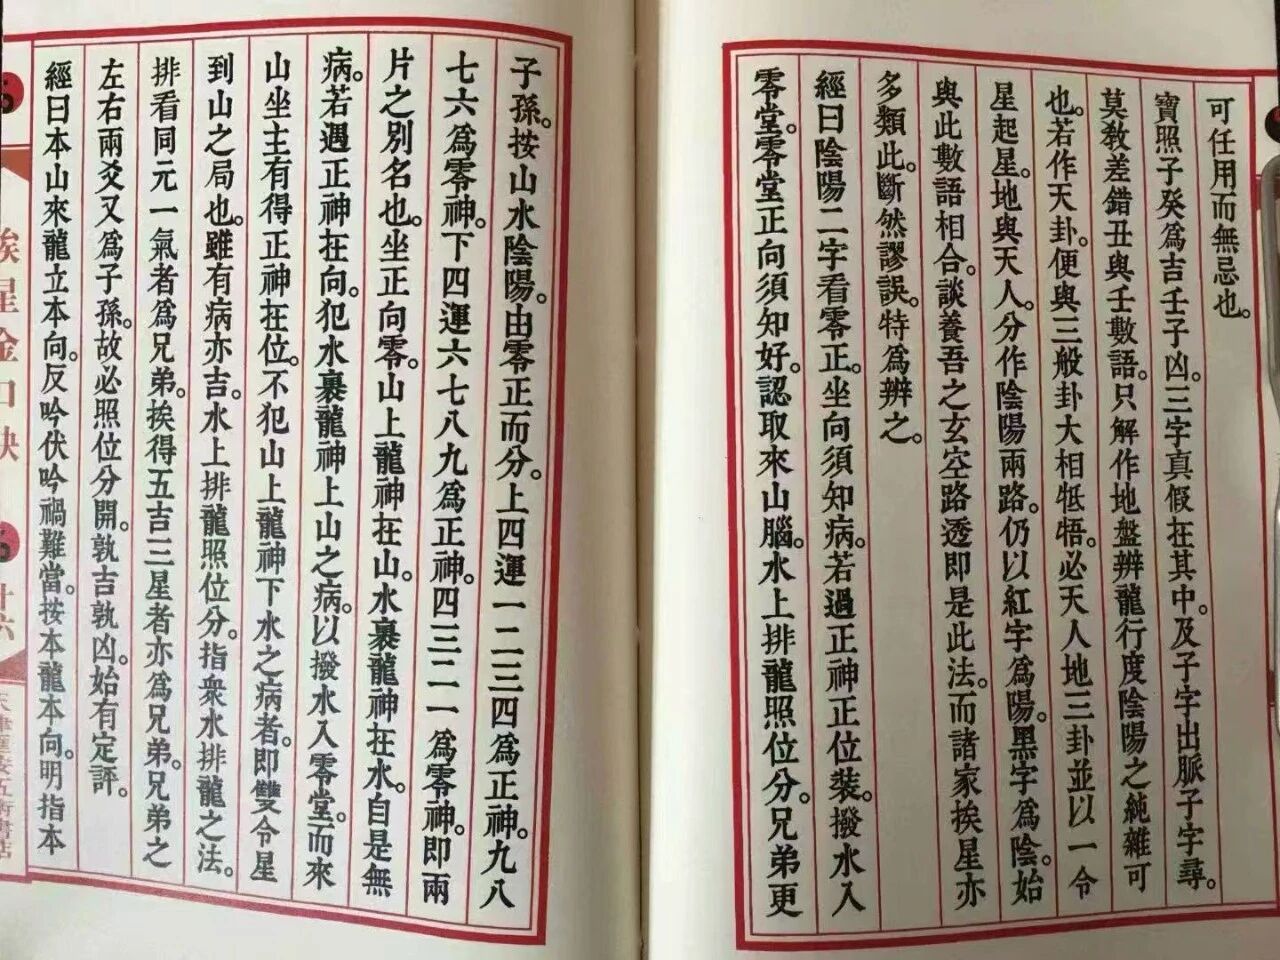 可任用而無忌也。
寶照子癸為吉壬子凶。三字真假在其中。及子字出脈子字尋。
莫教差錯丑與壬數語。只解作地盤辨龍行度陰陽之純雜可
也。若作天卦。便與三般卦大相牴牾。必天人地三卦並以一令
星起星。地與天人。分作陰陽兩路。仍以紅字為陽。黑字為陰。始
與此數語相合。談養吾之玄空路透即是此法。而諸家挨星亦
多類此。斷然謬誤。特為辨之。
經曰陰陽二字看零正。坐向須知病。若過正神正位裝。撥水入
零堂。零堂正向須知好。認取來山腦。水上排龍照位分。兄弟更
子孫。按山水陰陽。由零正而分。上四運一二三四為正神。九八
七六為零神。下四運六七八九為正神。四三二一為零神。即兩
片之別名也。坐正向零。山上龍神在山。水裏龍神在水。自是無
病。若遇正神在向。犯水裏龍神上山之病。以撥水入零堂。而來
山坐主有得正神在位。不犯山上龍神下水之病者。即雙令星
到山之局也。雖有病亦吉。水上排龍照位分。指衆水排龍之法。
排看同元一氣者為兄弟。挨得五吉三星者亦為兄弟。兄弟之
左右兩爻又為子孫。故必照位分開。孰吉孰凶。始有定評。
經曰本山來龍立本向。反吟伏吟禍難當。按本龍本向。明指本
挨星金口訣
廿六